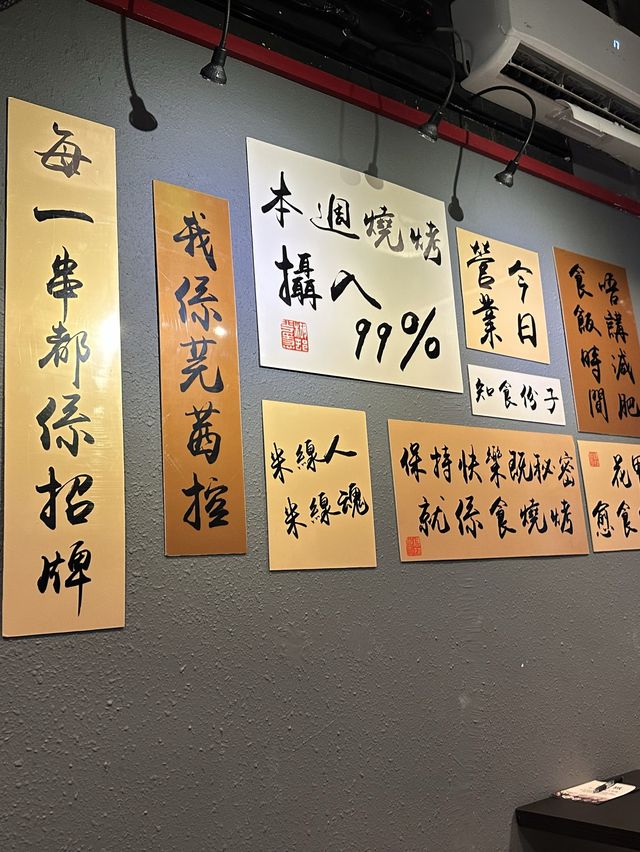 每一串都係招牌
我係芫茜控
本週燒烤
攝入
99%
今日
營業
知食份子
唔講減肥
食飯時間
米線人
米線魂
保持快樂既秘密
就係食燒烤
花甲
愈食